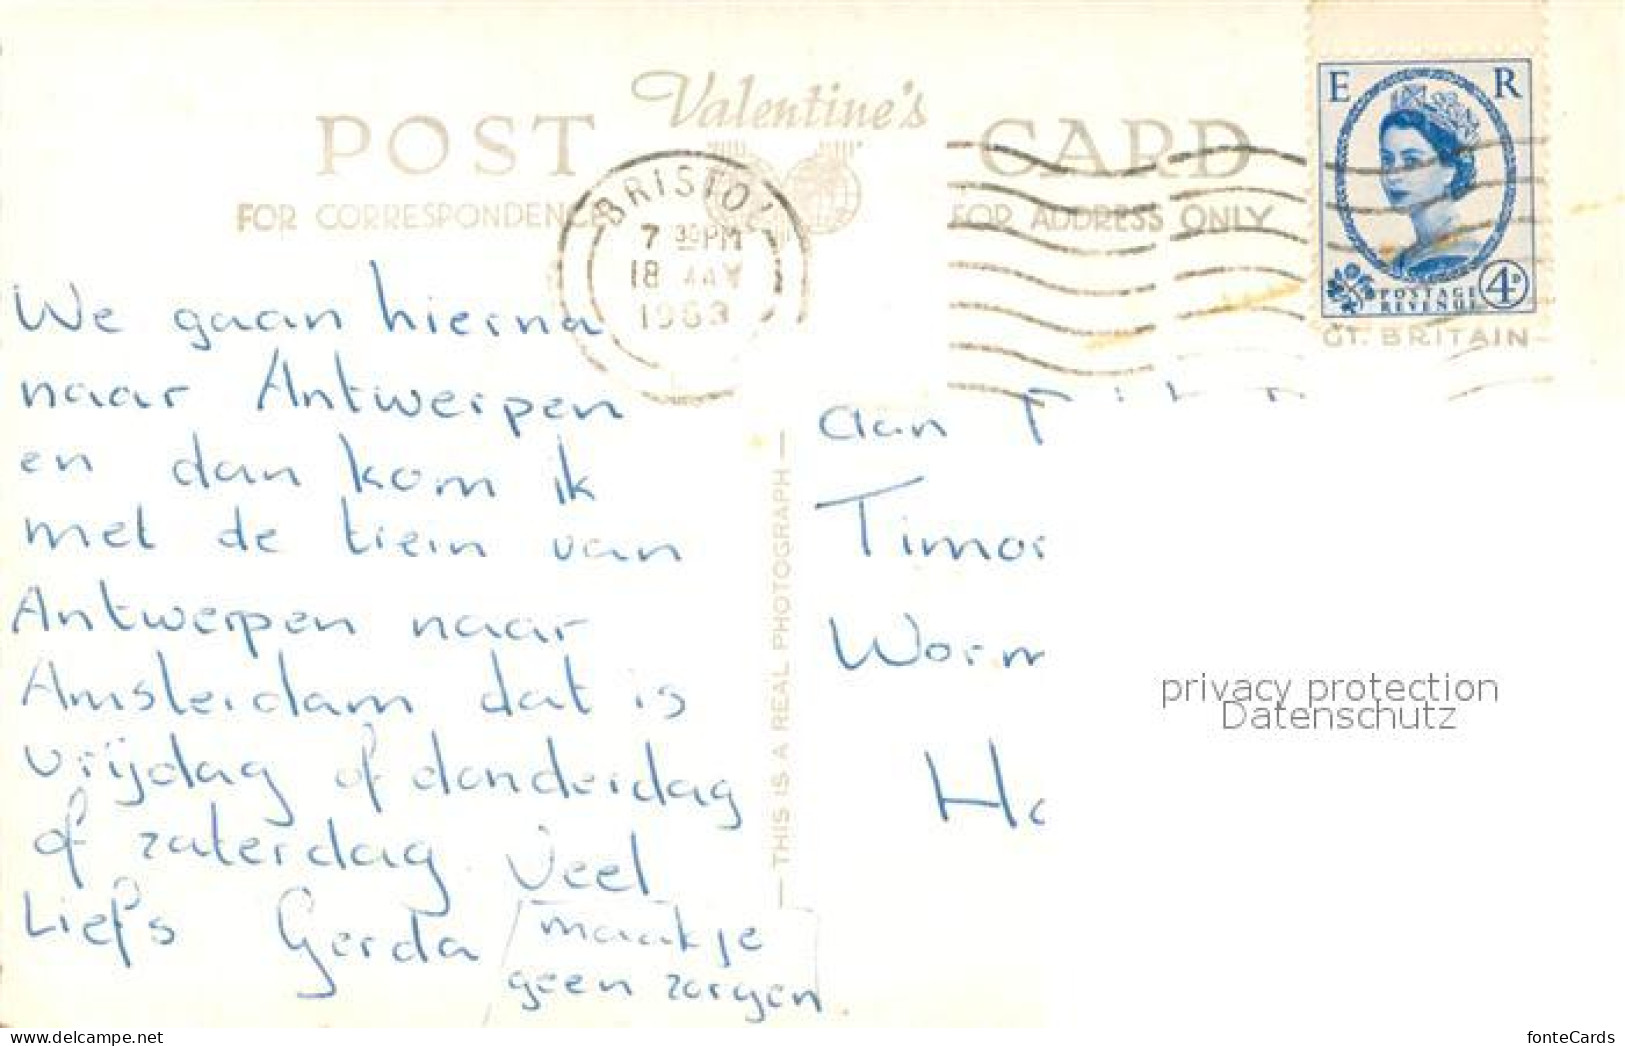 Valentine's
POST CARD
FOR CORRESPONDENCE FOR ADDRESS ONLY
BRISTOL
7 30 PM
18 MAY
1963
E R
POSTAGE
REVENUE
4D
GT. BRITAIN
We gaan hierna
naar Antwerpen
en dan kom ik
met de trein van
Antwerpen naar
Amsterdam dat is
vrijdag of donderdag
of zaterdag. Veel
Liefs Gerda
maak je
geen zorgen.
— THIS IS A REAL PHOTOGRAPH —
aan
Timor
Worm
Ho
privacy protection
Datenschutz
www.delcampe.net
fonteCards